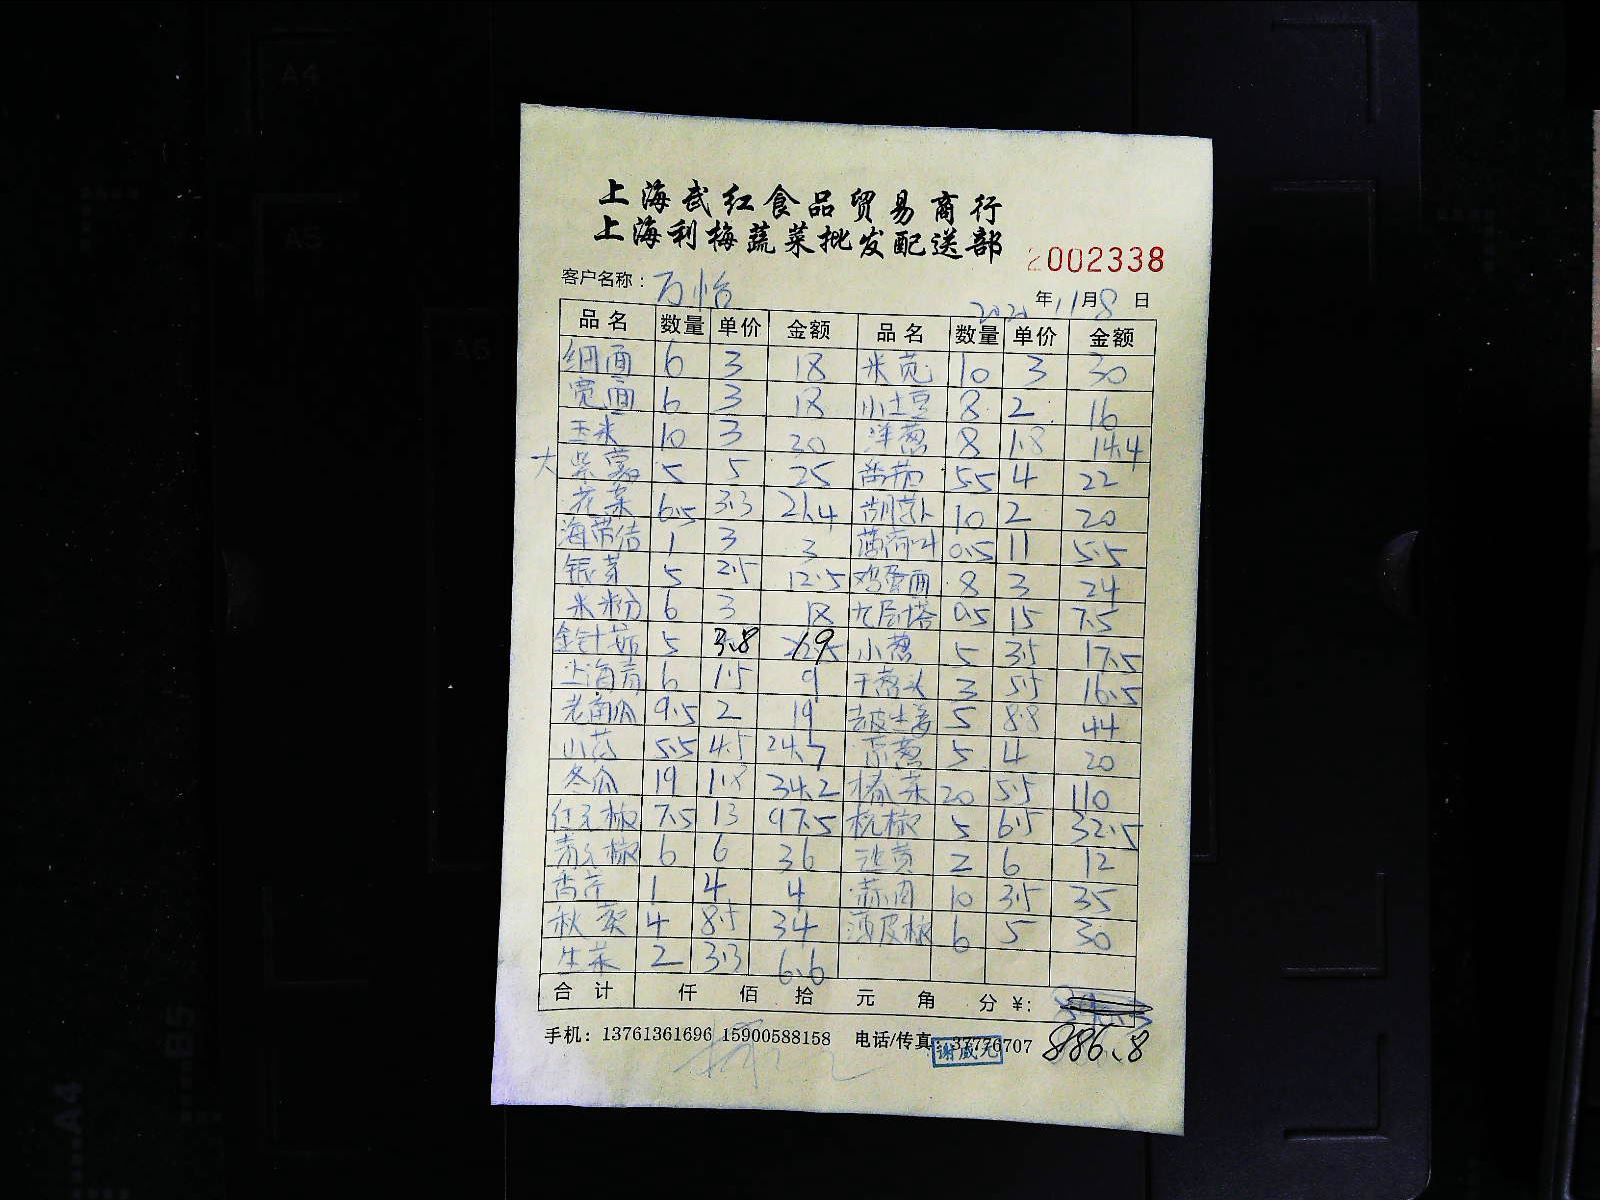 上海武红食品贸易商行
上海利梅蔬菜批发配送部
2002338
客户名称：万怡 年11月8日
品名 数量 单价 金额 品名 数量 单价 金额
细面 6 3 18 米苋 10 3 30
宽面 6 3 18 小土豆 8 2 16
玉米 10 3 30 洋葱 8 1.8 14.4
大紫薯 5 5 25 番茄 5.5 4 22
花菜 6.5 3.3 21.4 胡萝卜 10 2 20
海带结 1 3 3 薄荷叶 0.5 11 5.5
银芽 5 2.5 12.5 鸡蛋面 8 3 24
米粉 6 3 18 九层塔 0.5 15 7.5
金针菇 5 3.8 19 小葱 5 3.5 17.5
上海青 6 1.5 9 干葱头 3 5.5 16.5
老南瓜 9.5 2 19 去皮生姜 5 8.8 44
山药 5.5 4.5 24.7 京葱 5 4 20
冬瓜 19 1.8 34.2 20 5.5 110
红元椒 7.5 13 97.5 杭椒 5 6.5 32.5
青元椒 6 6 36 韭黄 2 6 12
香芹 1 4 4 蒜肉 10 3.5 35
秋葵 4 8.5 34 薄皮椒 6 5 30
生菜 2 3.3 6.6
合计 仟 佰 拾 元 角 分 ¥：
886.8
手机：13761361696 15900588158 电话/传真：37776707
谢威元